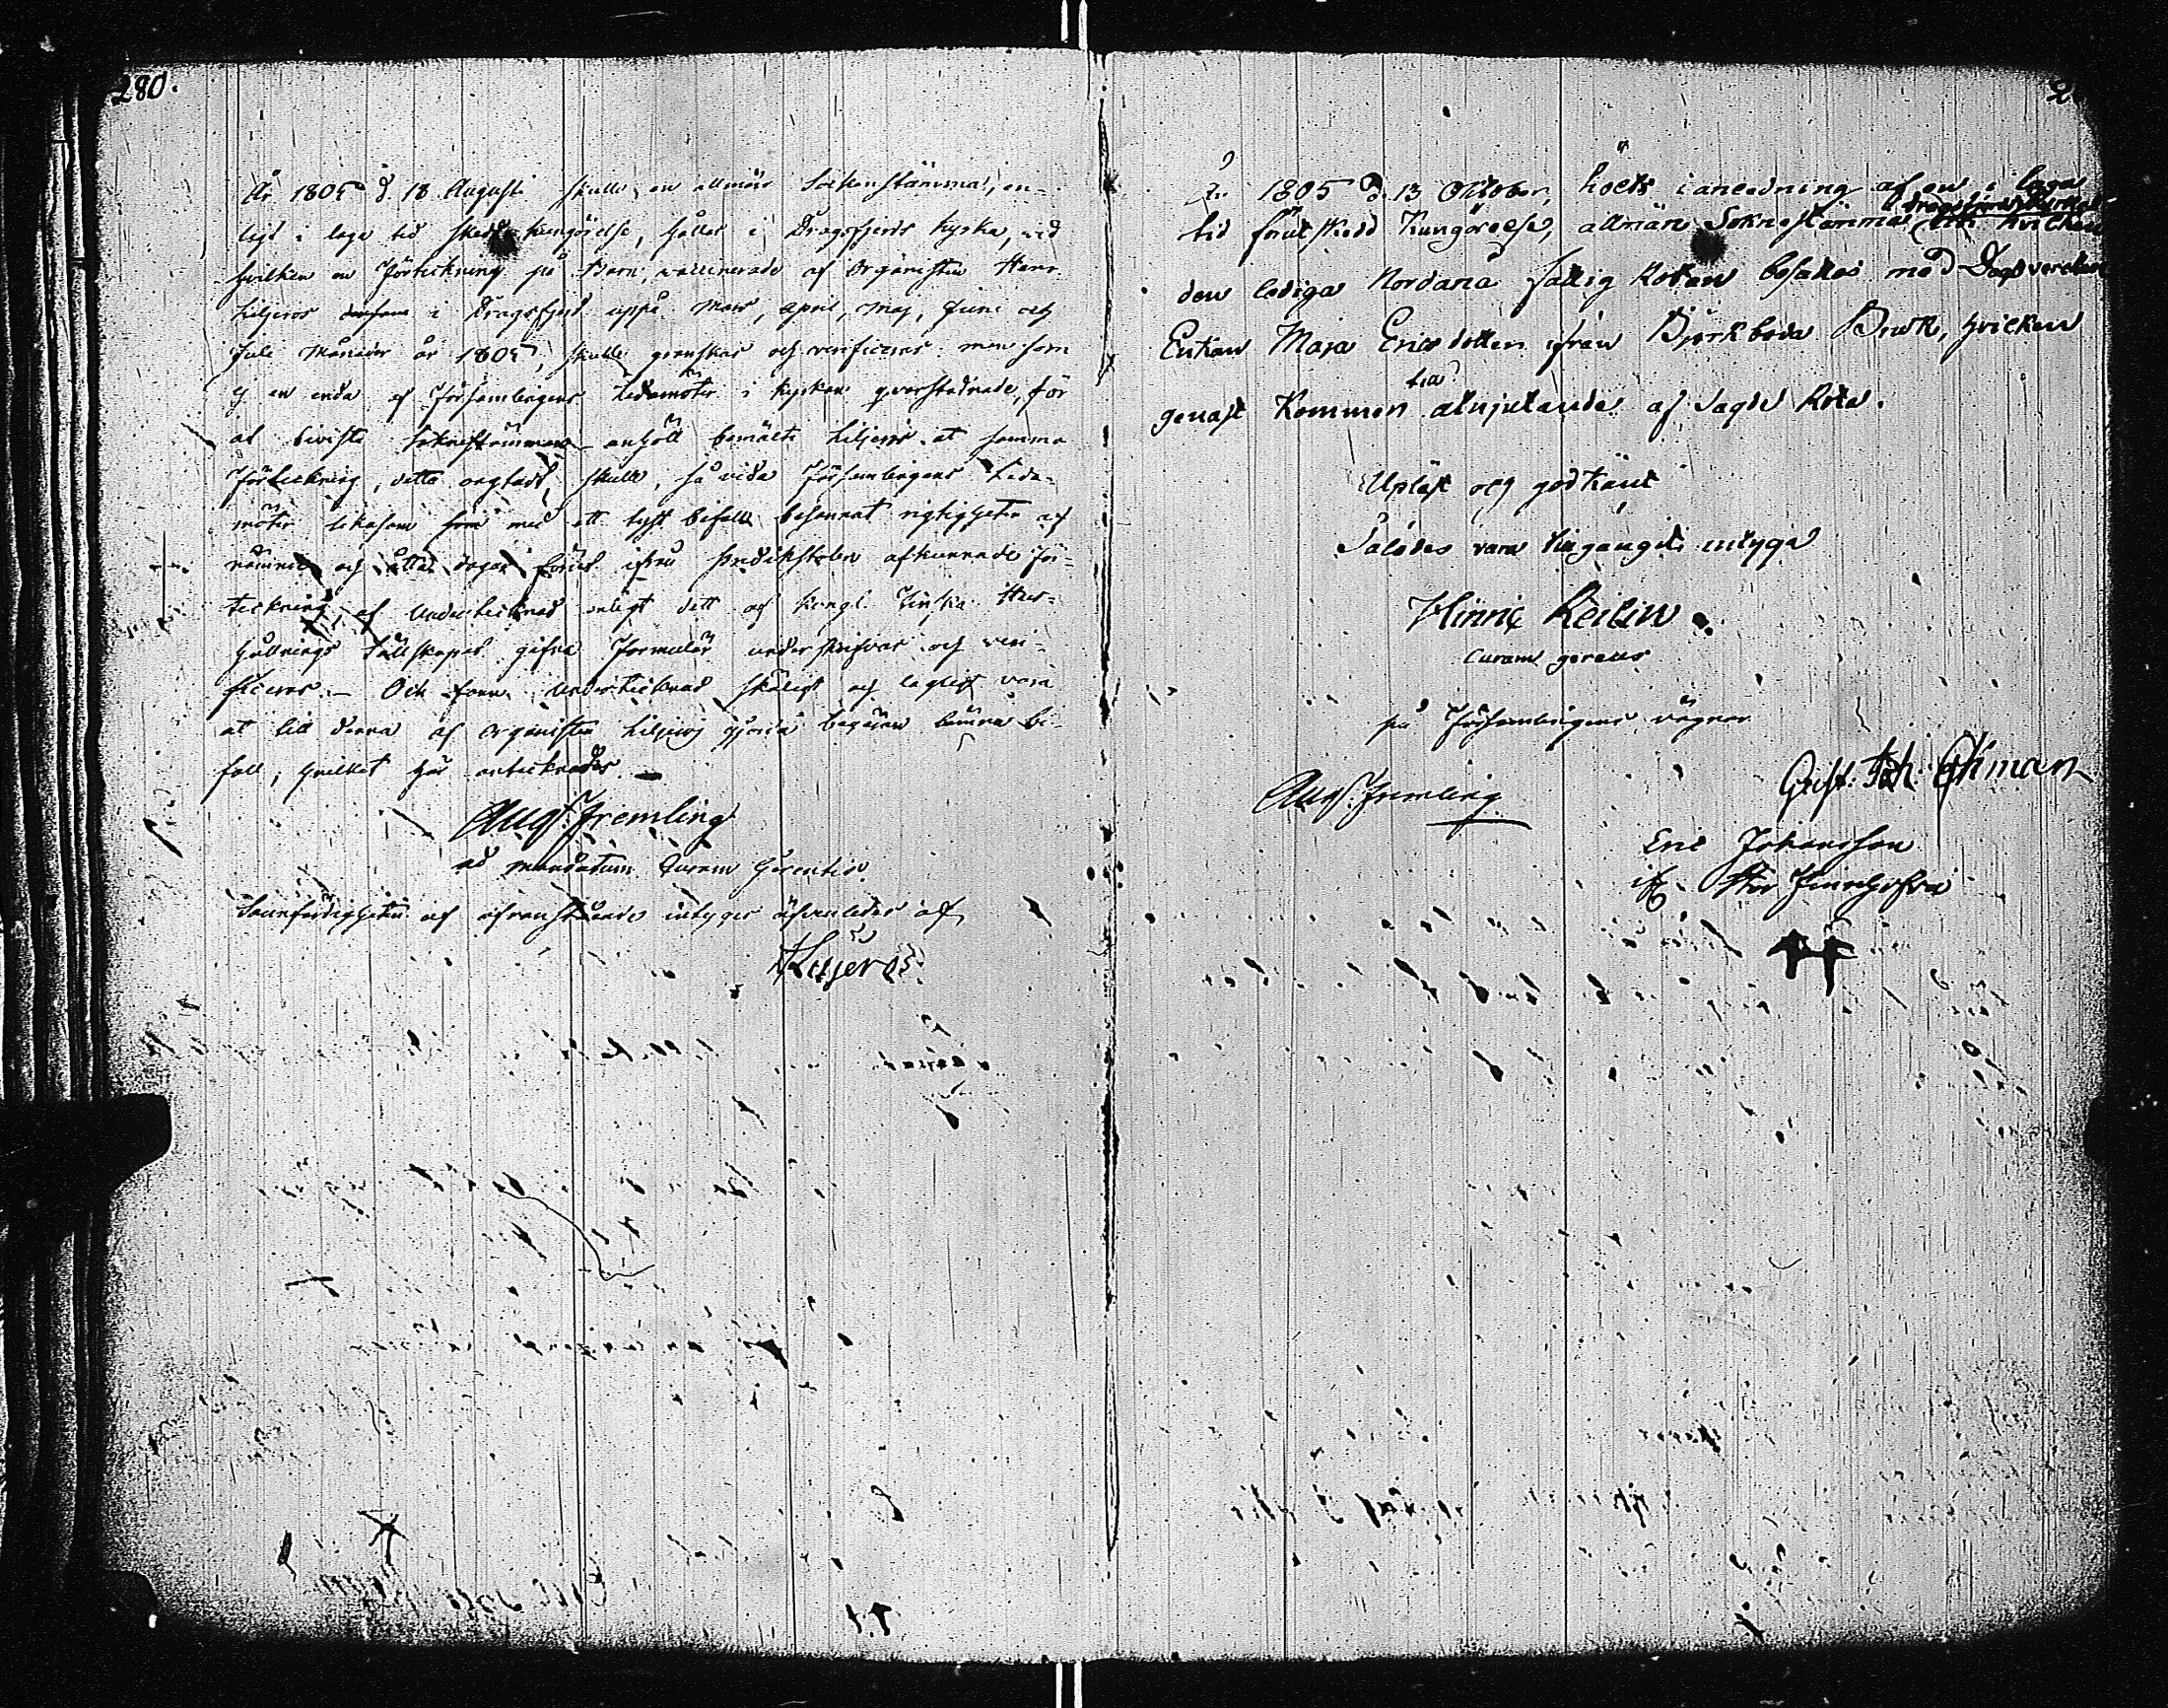 280.
År 1805 d. 18 Augusti skulle en allmän Sockenstämma, en-
ligt i laga tid skedd kungörelse, hållas i Dragsfjerds kyrka, vid
hvilken en förteckning på Barn, vaccinerade af Organisten Herr
Liljeros i Dragsfjerd uppå Mars, April, Maj, Juni och
Juli Månader år 1805, skulle granskas och verificeras; men som
ej en enda af Församlingens Ledamöter i kyrkan qvarstadnade, för
at bivista Soknestämman anhöll bemälte Liljeros at samma
förteckning, detta oagtadt, skulle, så vida Församlingens Leda-
möter likasom med ett tyst bifall besannat rigtigheten af
nämnde och åtta dagar förut ifrån Predikstolen afkunnade för-
teckning, af Undertecknad enligt dett af Kongl. Finska Hus-
hållnings Sällskapet gifna Formulär underskrifvas och veri-
ficeras. — Och fann Undertecknad skäligt och lagligt vara
at till denna af Organisten Liljeros gjorda begäran lämna bi-
fall, hvilket här antecknades. —
Aug. Fremling
ad mandatum Curam Gerentis.
Sannfärdigheten af ofvanstående intygas äfvenledes af
Liljeros
År 1805 d. 13 Oktober, höls i anledning af en i laga
tid förut skedd Kungörelse, allmän Soknestämma i Dragsfjerds Kyrka, vid hvilken
den lediga Nordanå fattig Roten besattes med Dagsverckar
Enkan Maja Ericsdotter ifrån Björkboda Bruk, hvilken
genast Kommer til atnjutande af sagde Rota.
Upläst och godkänt
Således vara tilgångit intyga
Hinric Reilin
Curam gerens
på Församlingens vägnar
Aug. Fremling
Gust. Joh. Öhman
Eric Johansson
if. Stor Finnhofva